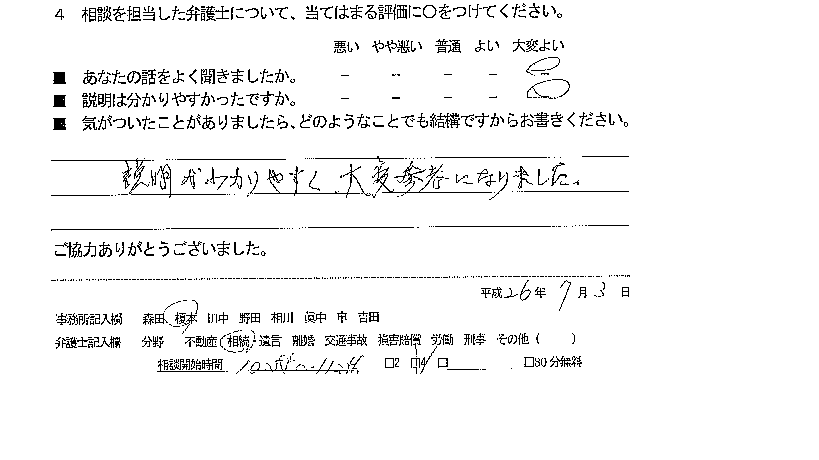 4 相談を担当した弁護士について、当てはまる評価に○をつけてください。
悪い やや悪い 普通 よい 大変よい
■ あなたの話をよく聞きましたか。 － － － －
■ 説明は分かりやすかったですか。 － － － －
■ 気がついたことがありましたら、どのようなことでも結構ですからお書きください。
説明がわかりやすく、大変参考になりました。
ご協力ありがとうございました。
平成26年 7月3日
事務所記入欄 森田 榎本 田中 野田 相川 吉田
弁護士記入欄 分野 不動産 相続 遺言 離婚 交通事故 損害賠償 労働 刑事 その他（ ）
相談開始時間 □2 □4 □ □30分無料